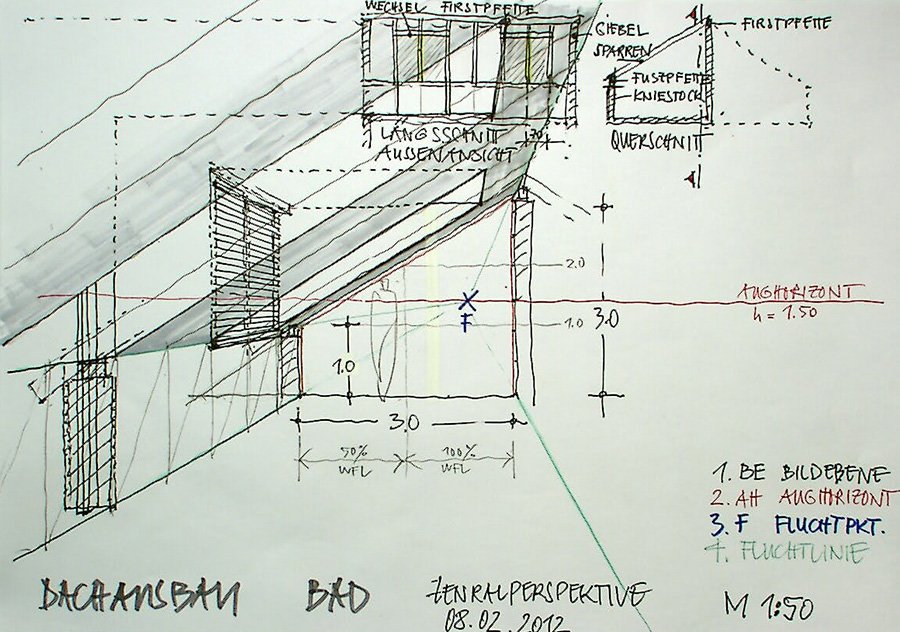 WECHSEL FIRSTPFETTE
GIEBEL
SPARREN
FIRSTPFETTE
FUSZPFETTE
KNIESTOCK
LÄNGSSCHNITT
AUSSENANSICHT
.70
QUERSCHNITT
2.0
AUGHORIZONT
h = 1.50
F
1.0
3.0
1.0
3.0
50%
WFL
100%
WFL
1. BE BILDEBENE
2. AH AUGHORIZONT
3. F FLUCHTPKT.
4. FLUCHTLINIE
DACHAUSBAU BAD
ZENRALPERSPEKTIVE
08.02.2012
M 1:50